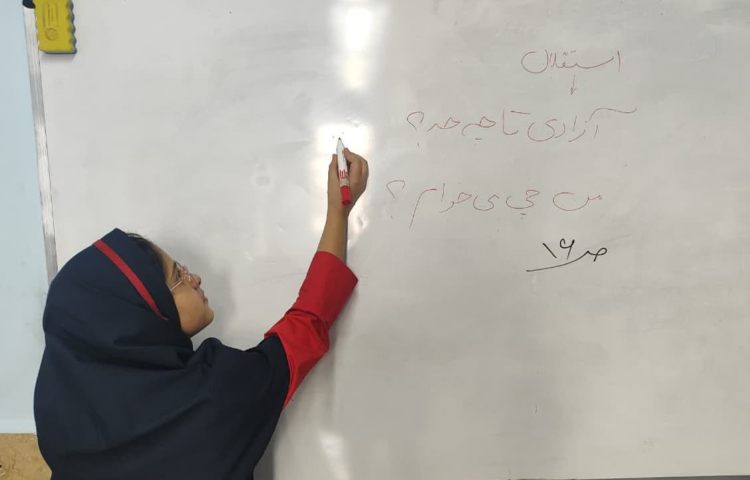 استقلال
آزادی تا چه حد؟
من چی می خوام؟
ص ۱۶